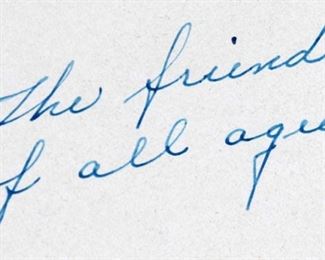 The friend
of all age